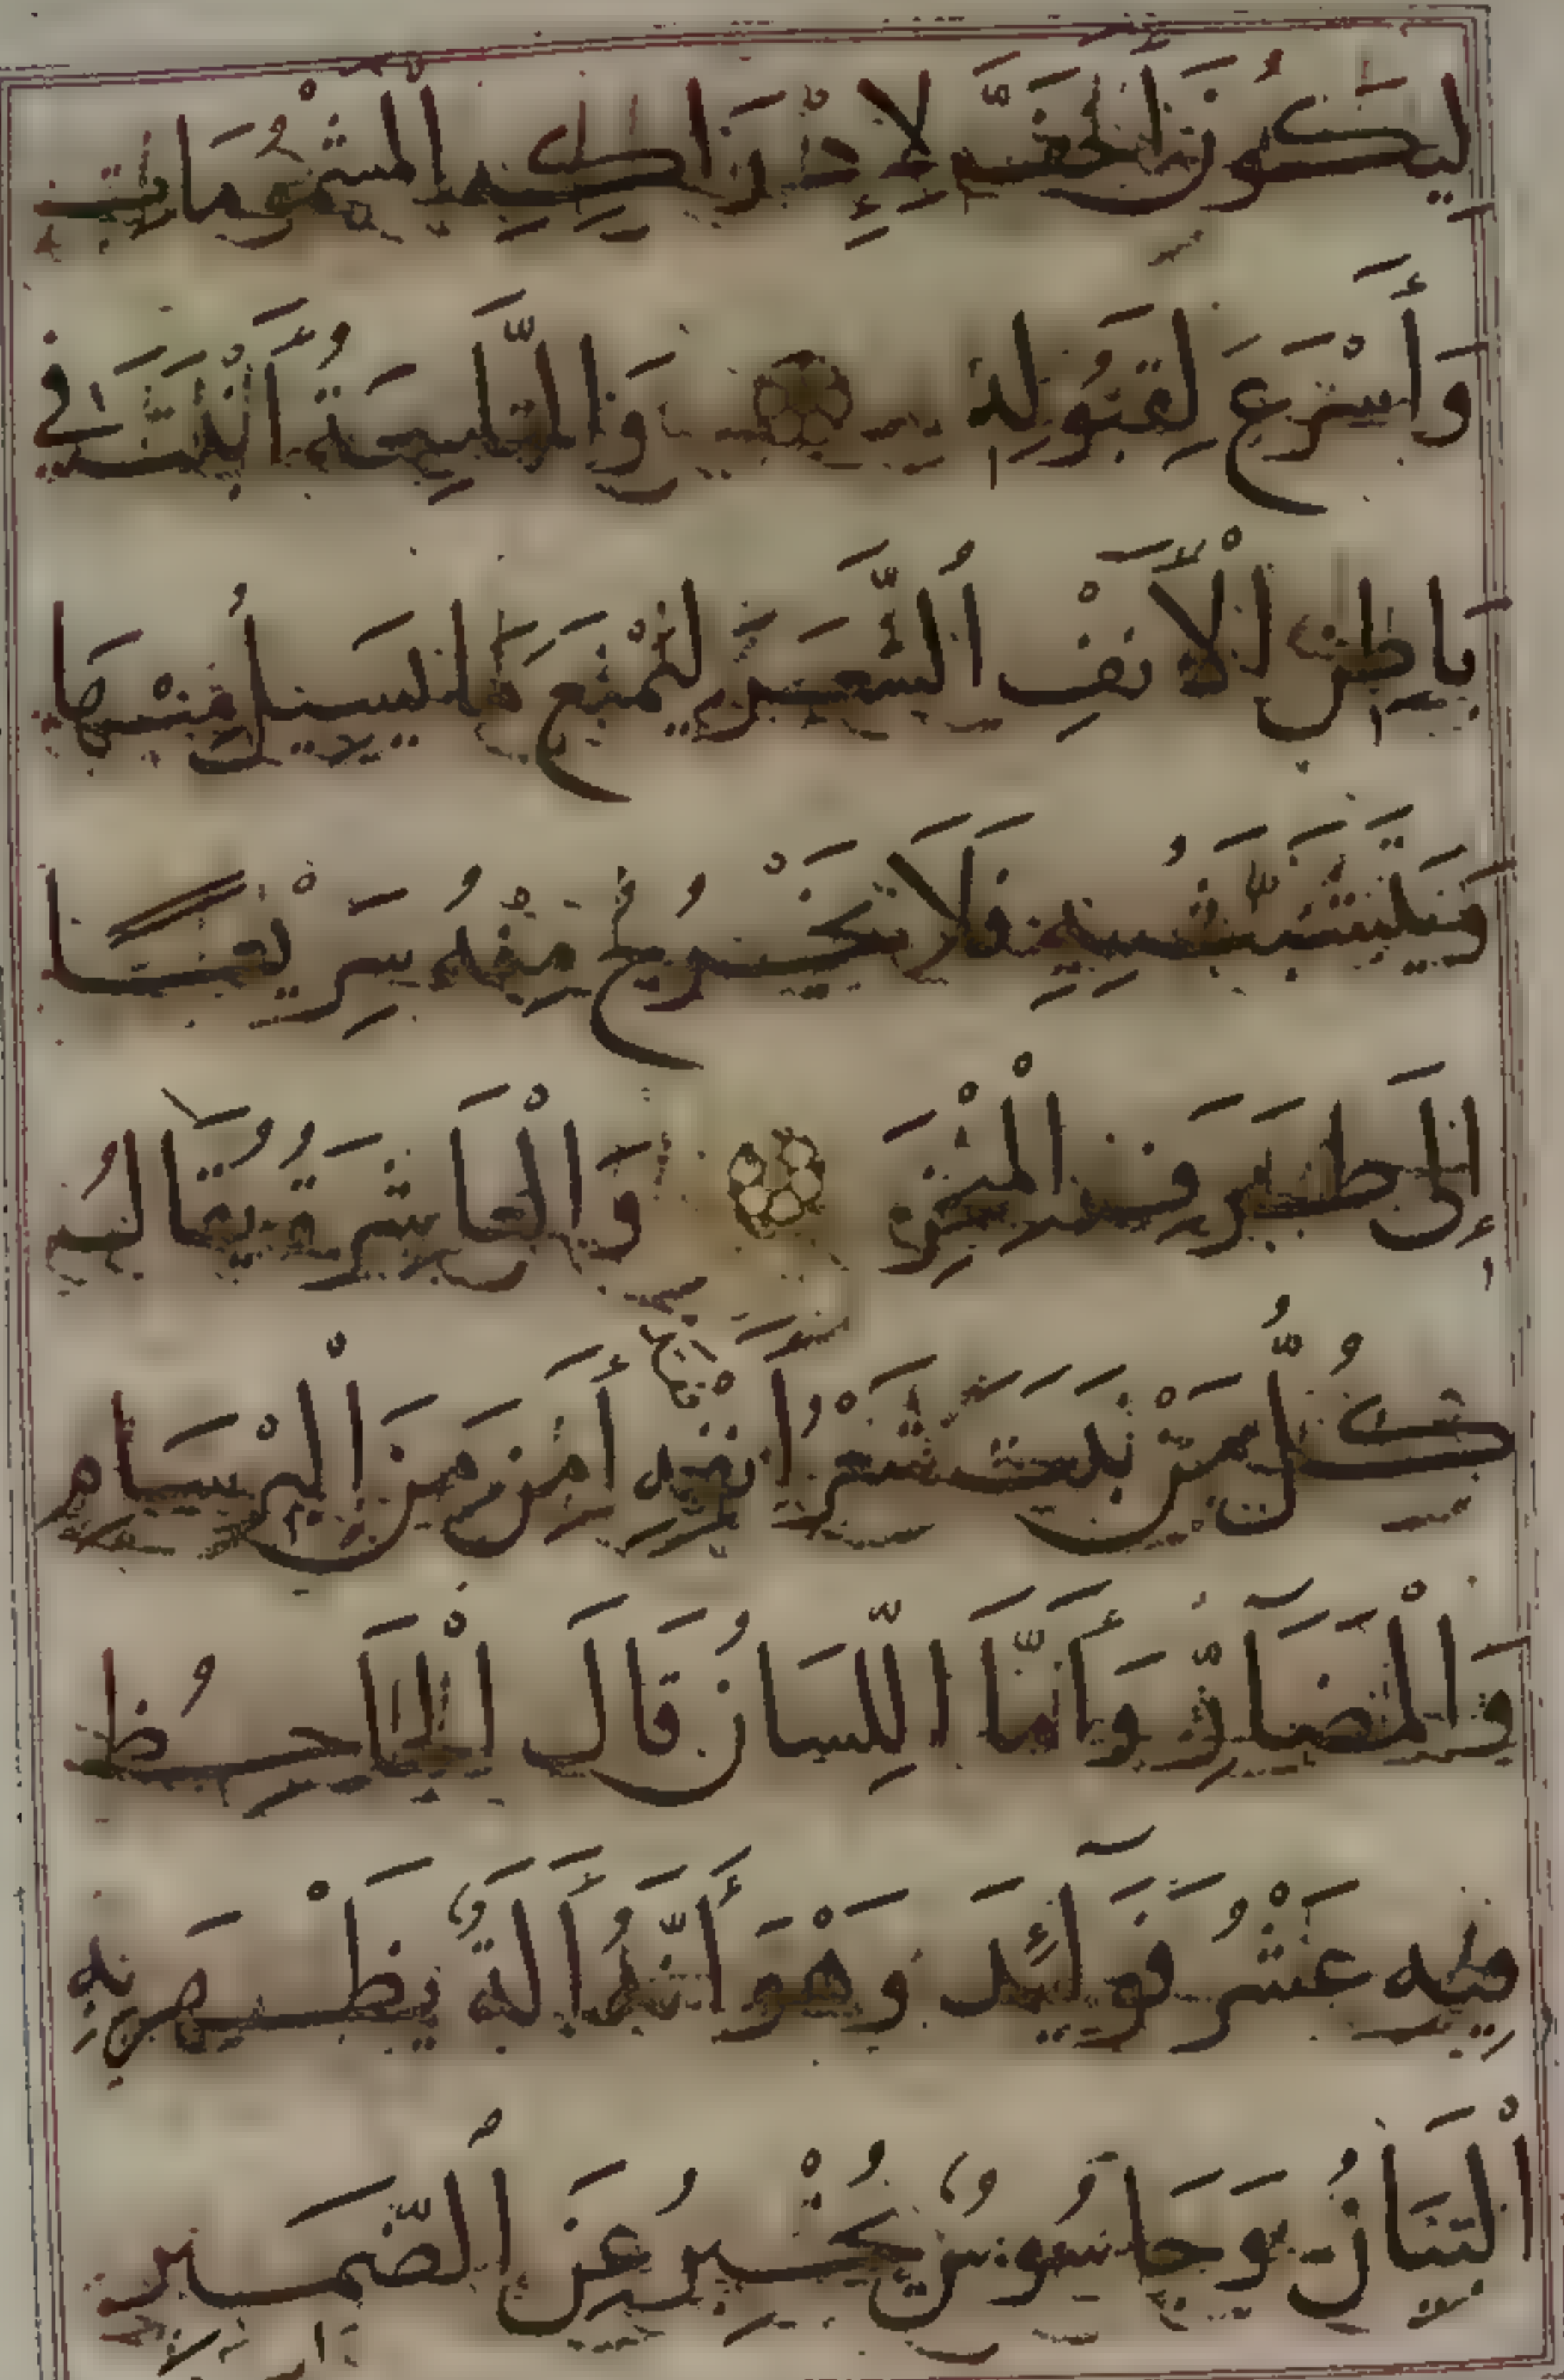 لِيَكُونَ أَخَفَّ لِإِدْرَاكِ الْمَشْمُومَاتِ
وَأَسْرَعَ لِقَبُولِهِ وَالتَّاسِعَةُ أَنْبَتَ فِي
بَاطِنِ الْأَنْفِ الشَّعَرَ لِيَمْنَعَ مَا يَسِيلُ مِنْهَا
وَيَتَشَبَّثُ بِهِ فَلَا يَخْرُجُ مِنْهُ سَرِيْعًا
إِلَى طَرَفِ الْمَنْخَرِ وَالْعَاشِرَةُ يُقَالُ
كُلُّ مَنْ نَبَتَ شَعْرُ أَنْفِهِ أَمِنَ مِنَ الْبِرْسَامِ
وَالْمَضَآرِّ وَأَمَّا اللِّسَانُ قَالَ الْجَاحِظُ
فِيهِ عَشْرُ فَوَآئِدَ وَهْوَ أَنَّهُ أَلَةٌ يَظْهَرُ بِهِ
الْبَيَانُ وَجَاسُوسٌ يُخْبِرُ عَنِ الضَّمِيرِ